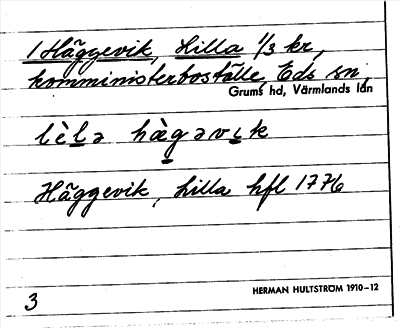 1 Häggevik, Lilla 1/3 kr,
komministerboställe, Eds sn,
Grums hd, Värmlands län
lɛ̀lə hàgəvɩk
Häggevik, Lilla hfl 1776
HERMAN HULTSTRÖM 1910-12
3